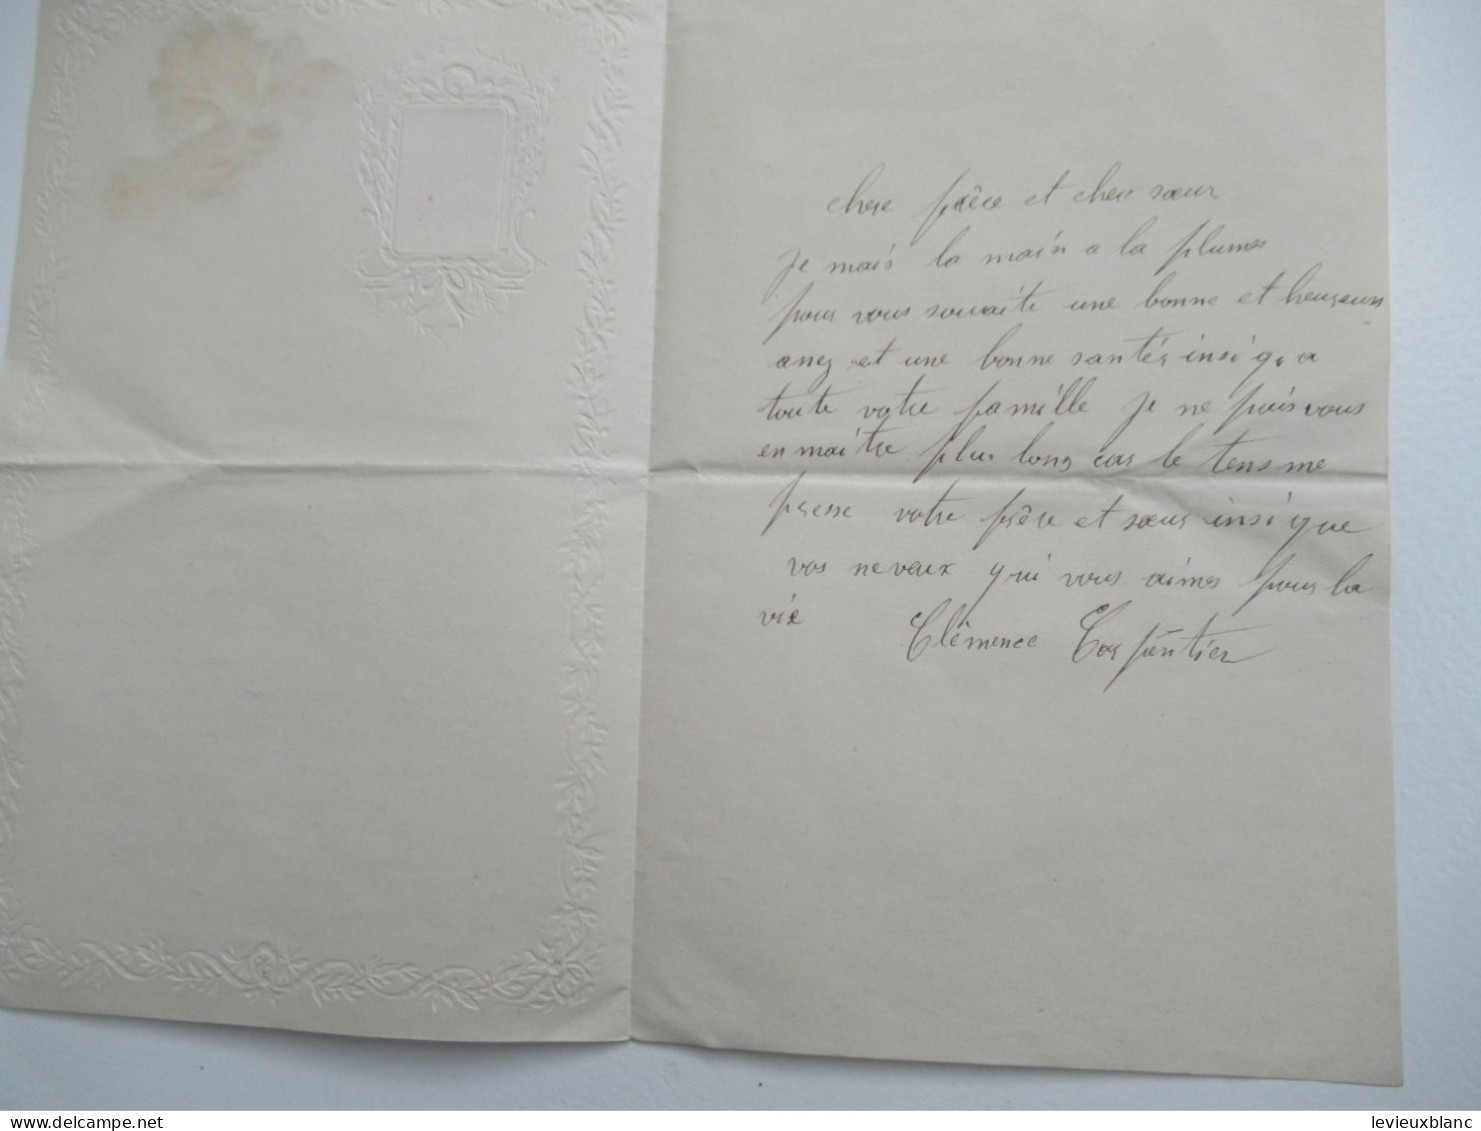 chere frère et chere sœur
Je mais la main a la plumes
pour vous souaite une bonne et heureuse
anez et une bonne santés insi q, a
toute votre famille Je ne puis vous
en maitre plus long car le tens me
presse votre frère et sœur insi que
vos neveux qui vous aimes pour la
vie
Clêmence Carpentier
delcampe.net
levieuxblanc